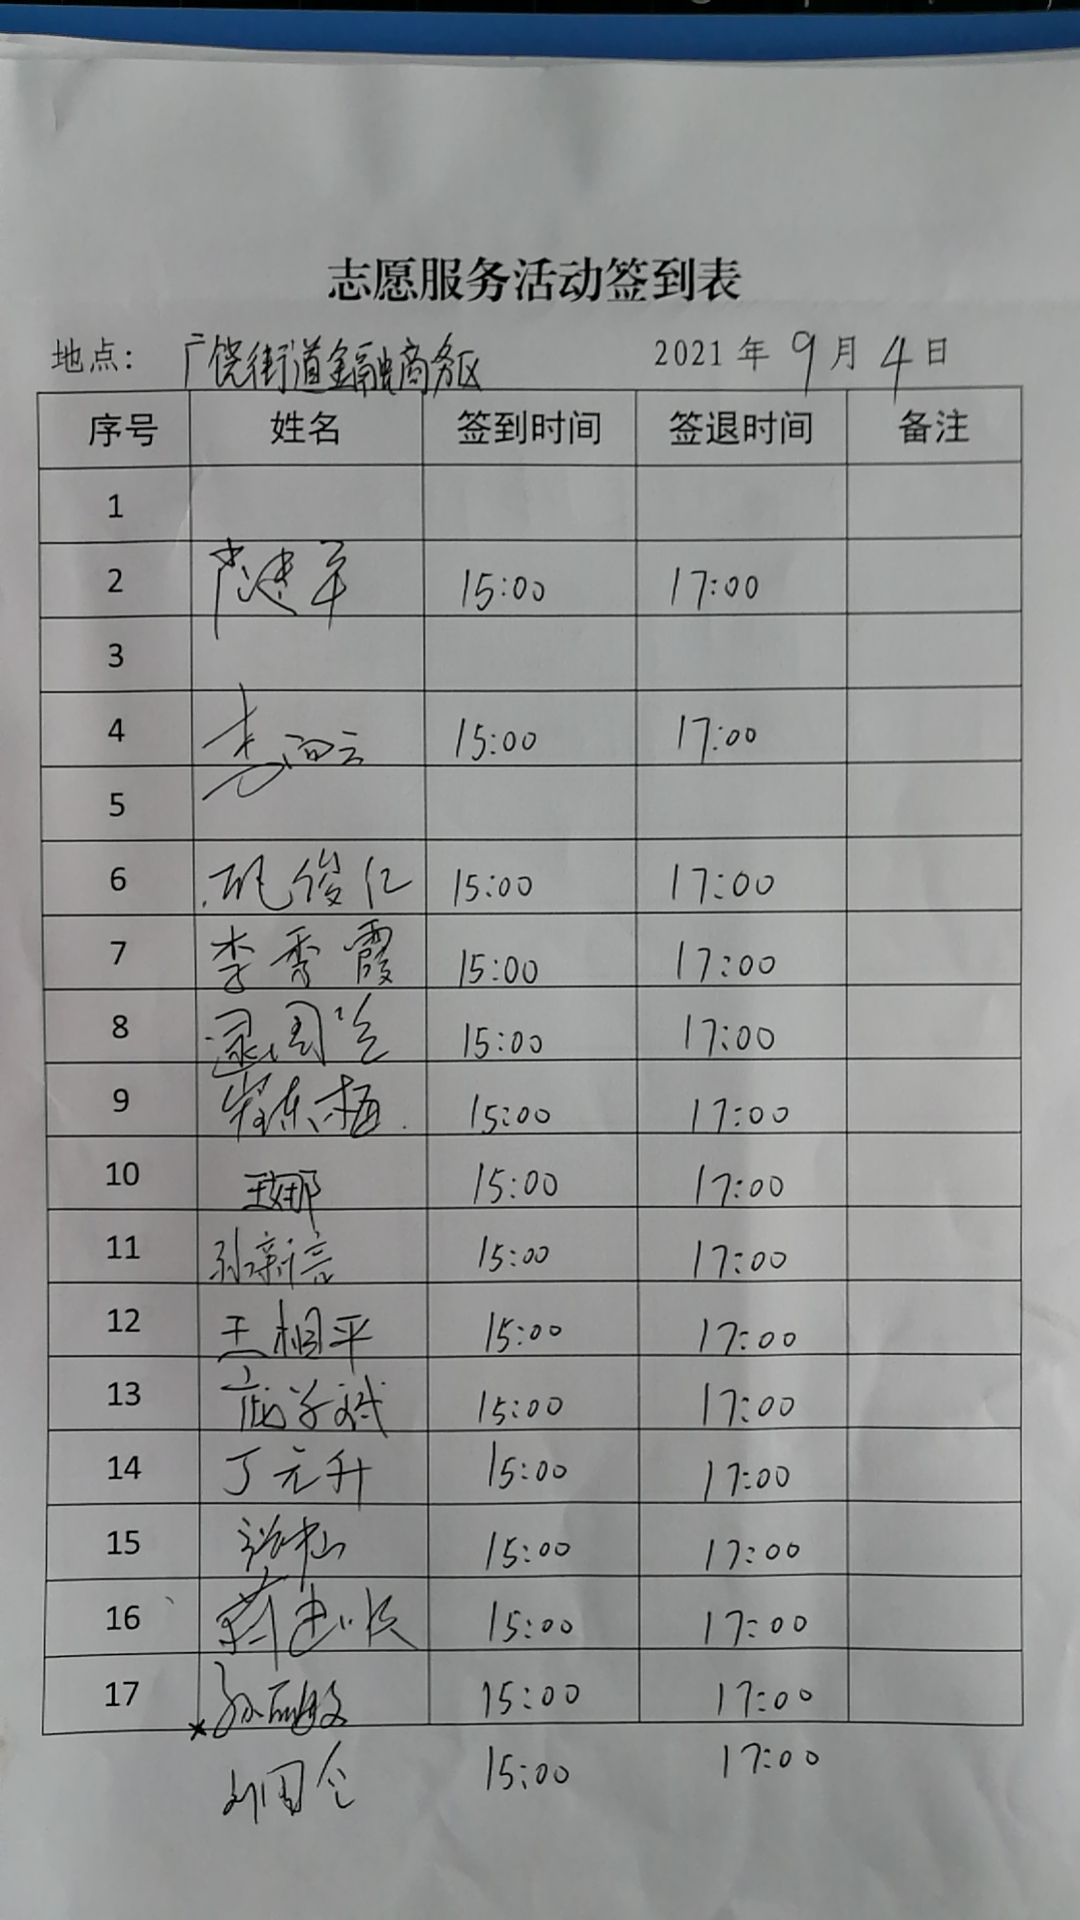 志愿服务活动签到表
地点: 广饶街道金融商务区 2021年9月4日
序号 姓名 签到时间 签退时间 备注
1
2 建军 15:00 17:00
3
4 15:00 17:00
5
6 俊仁 15:00 17:00
7 李秀霞 15:00 17:00
8 15:00 17:00
9 崔东梅 15:00 17:00
10 王娜 15:00 17:00
11 孙新信 15:00 17:00
12 王相平 15:00 17:00
13 15:00 17:00
14 丁元升 15:00 17:00
15 15:00 17:00
16 15:00 17:00
17 孙丽敏 15:00 17:00
15:00 17:00